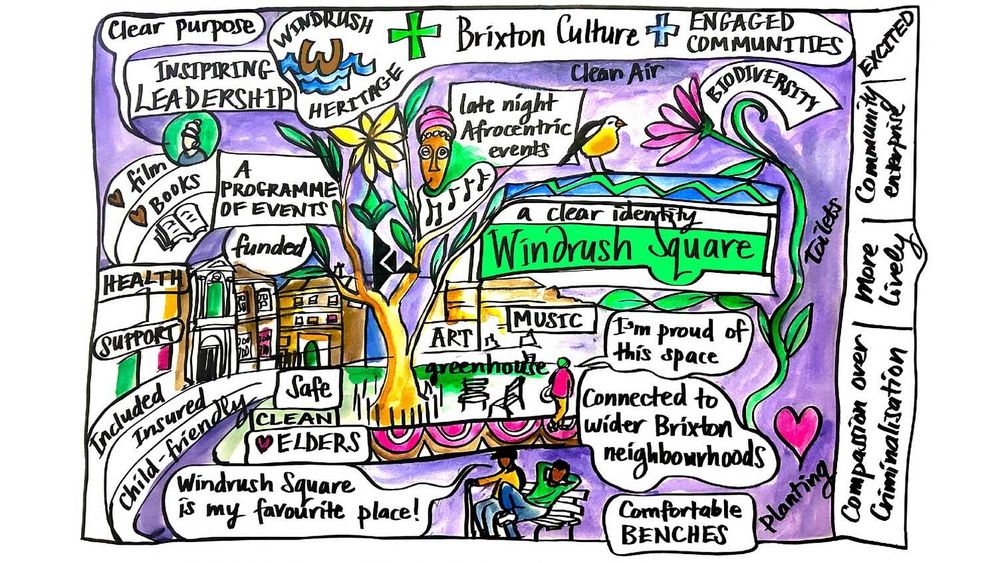 Clear purpose
INSIPIRING
LEADERSHIP
WINDRUSH
W
HERITAGE
Brixton Culture
ENGAGED
COMMUNITIES
EXCITED
Clean Air
BIODIVERSITY
late night
Afrocentric
events
Community
enterprise
film
BOOKS
A
PROGRAMME
OF EVENTS
funded
a clear identity
Windrush Square
Toilets
More
Lively
HEALTH
SUPPORT
ART
MUSIC
greenhouse
I'm proud of
this space
Included
Insured
Child-friendly
Safe
CLEAN
ELDERS
Connected to
wider Brixton
neighbourhoods
Compassion over
Criminalisation
Windrush Square
is my favourite place!
Comfortable
BENCHES
Planting